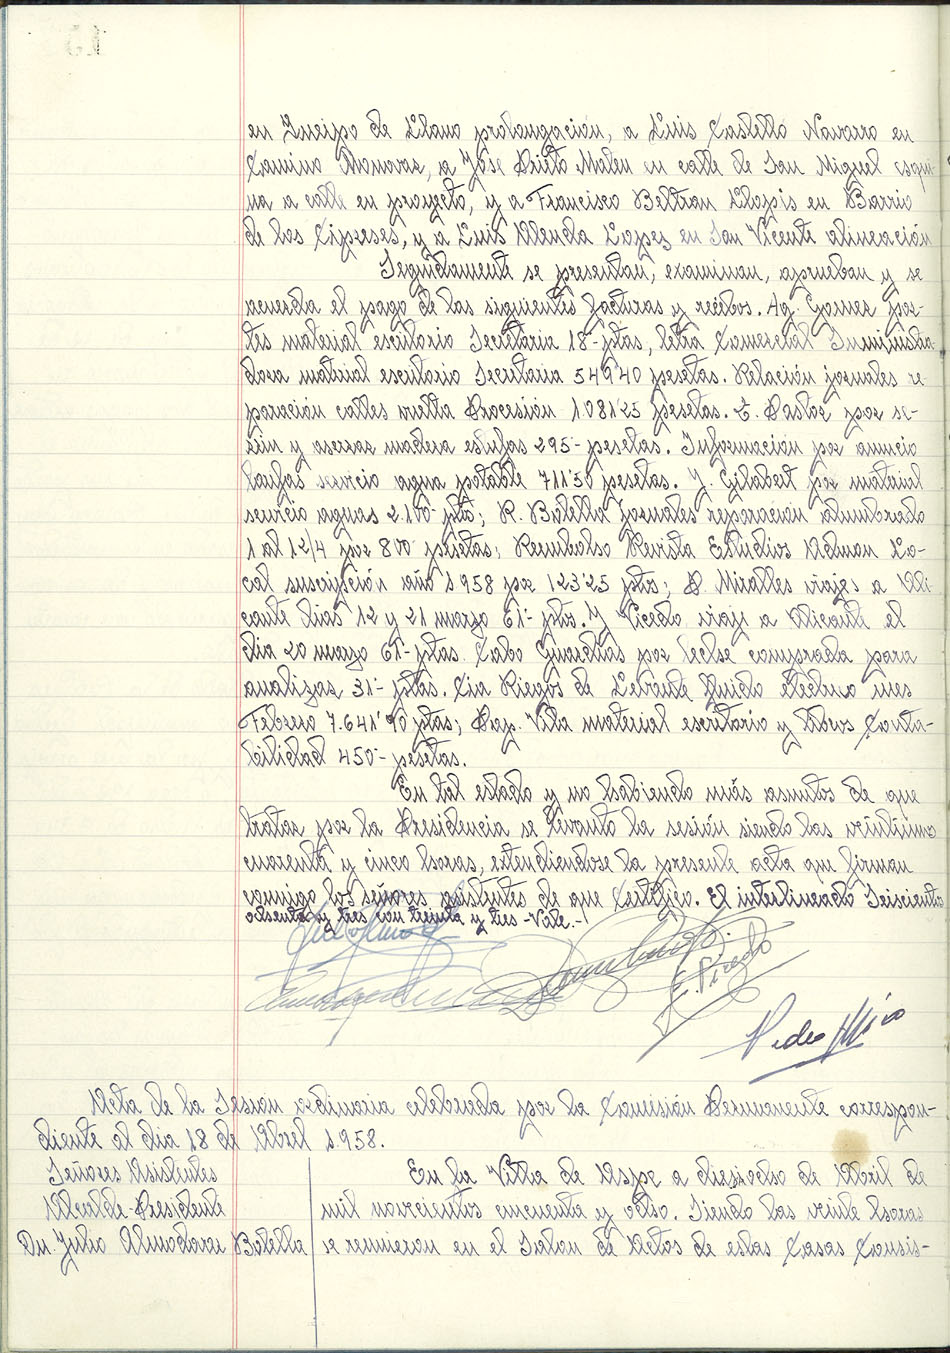 en Queipo de Llano prolongación, a Luis Castelló Navarro en
Camino Monovar, a José Prieto Malen en calle de San Miguel esqui-
na a calle en proyecto, y a Francisco Beltran Llopis en Barrio
de los Cipreses, y a Luis Alenda Lopez en San Vicente alineación
Seguidamente se presentan, examinan, aprueban y se
acuerda el pago de las siguientes facturas y recibos. Ag. Gomez por-
tes material escritorio Secretaria 18-ptas, letra Comercial Suministra-
dora material escritorio Secretaria 549'40 pesetas. Relación jornales re-
paración calles vuelta Procesión 1.081'25 pesetas. E. Pastor por se-
rrin y aserrar madera estufas 295- pesetas. Información por anuncio
tarifas servicio agua potable 711'50 pesetas. J. Gilabert por material
servicio aguas 2.100- ptas; R. Botella jornales reparación alumbrado
1 al 12/4 por 800 pesetas; Reembolso Revista Estudios Admon Lo-
cal suscripción año 1.958 por 123'25 ptas; P. Miralles viajes a Ali-
cante dias 12 y 21 marzo 61- ptas. J. Vicedo viaje a Alicante el
dia 20 marzo 61- ptas. Cabo Guardias por leche comprada para
analizar 31- ptas. Cia Riegos de Levante fluido electrico mes
Febrero 7.641'90 ptas; Pap. Vila material escritorio y libros Conta-
bilidad 450- pesetas.
En tal estado y no habiendo más asuntos de que
tratar por la Presidencia se levanto la sesión siendo las veintiuna
cuarenta y cinco horas, extendiendose la presente acta que firman
conmigo los señores asistentes de que Certifico. El interlineado Seiscientos
ochenta y tres con treinta y tres -Vale.-
Pedro Mira
Acta de la Sesion ordinaria celebrada por la Comisión Permanente correspon-
diente al dia 18 de Abril 1.958.
Señores Asistentes
Alcalde-Presidente
Dn. Julio Almodovar Botella
En la Villa de Aspe a dieziocho de Abril de
mil novecientos cincuenta y ocho. Siendo las veinte horas
se reunieron en el Salon de Actos de estas Casas Consis-